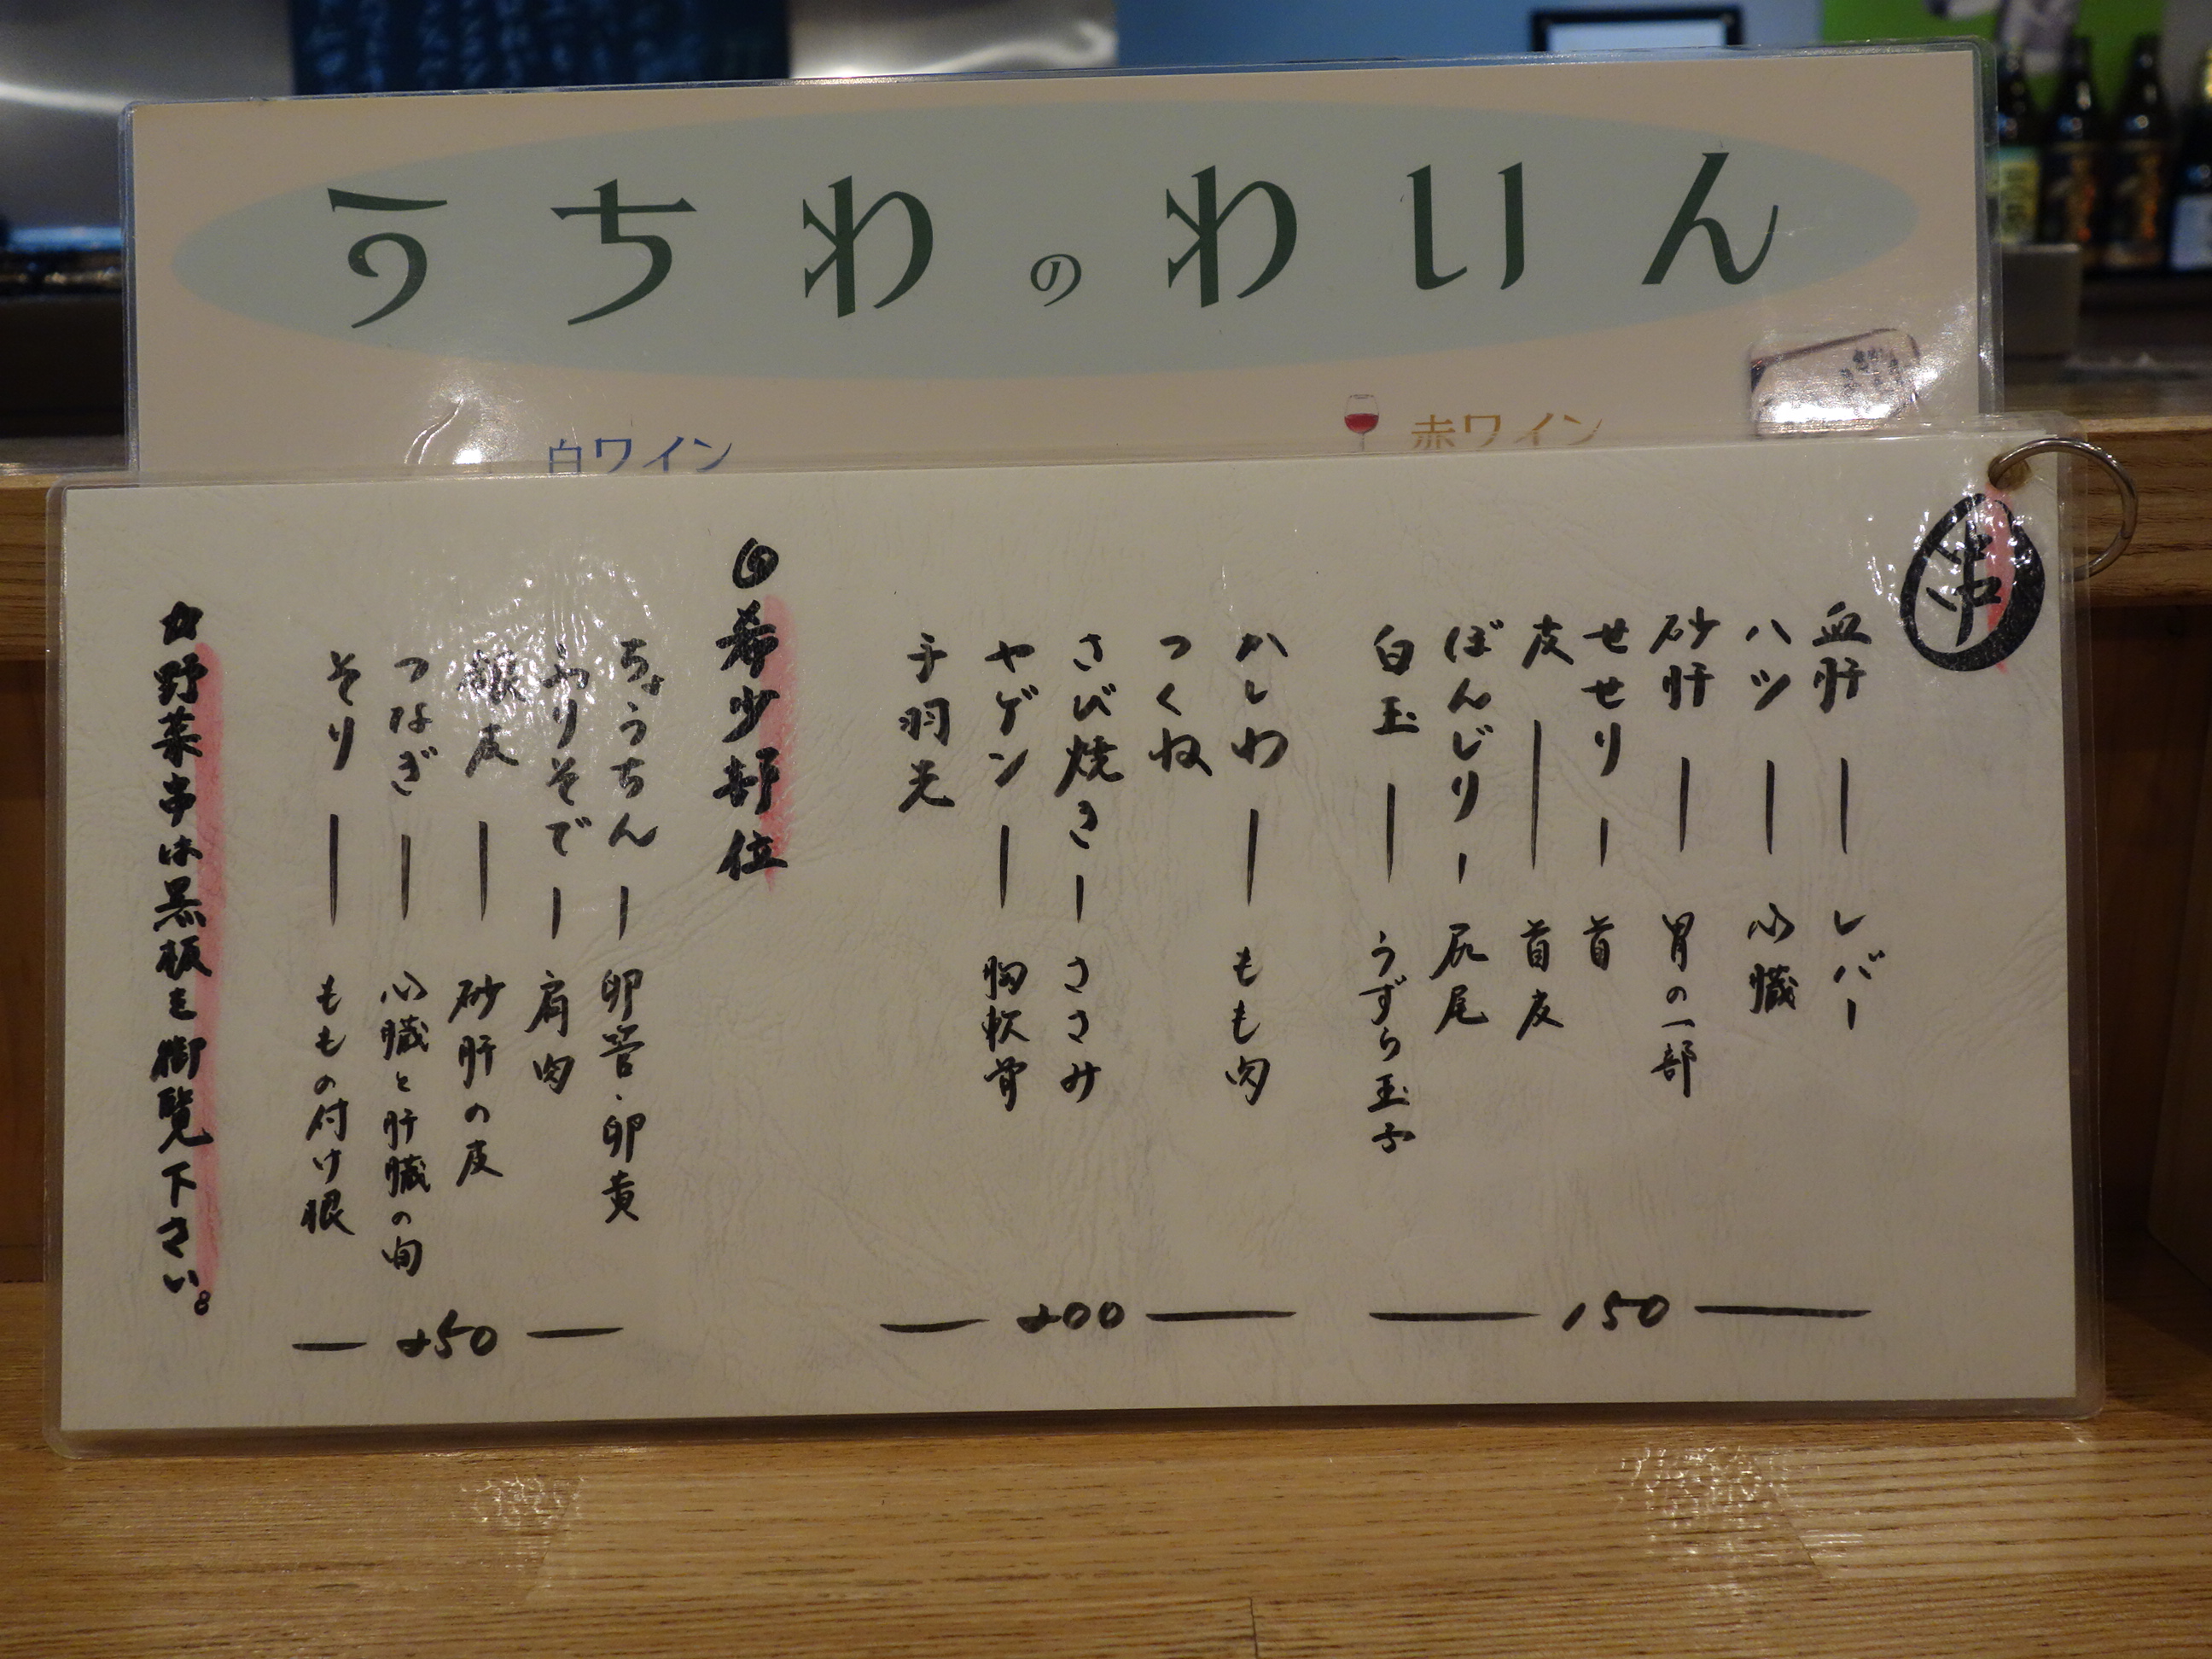 うちわのわいん
白ワイン
赤ワイン
串
血肝 ー レバー
ハツ ー 心臓
砂肝 ー 胃の一部
せせり ー 首
皮 ー 首皮
ぼんじり ー 尻尾
白玉 ー うずら玉子
150
かしわ ー もも肉
つくね
さび焼き ー ささみ
ヤゲン ー 胸軟骨
手羽先
200
◎希少部位
ちょうちん ー 卵管・卵黄
ふりそで ー 肩肉
銀皮 ー 砂肝の皮
つなぎ ー 心臓と肝臓の間
そり ー ももの付け根
250
☆野菜串は黒板を御覧下さい。